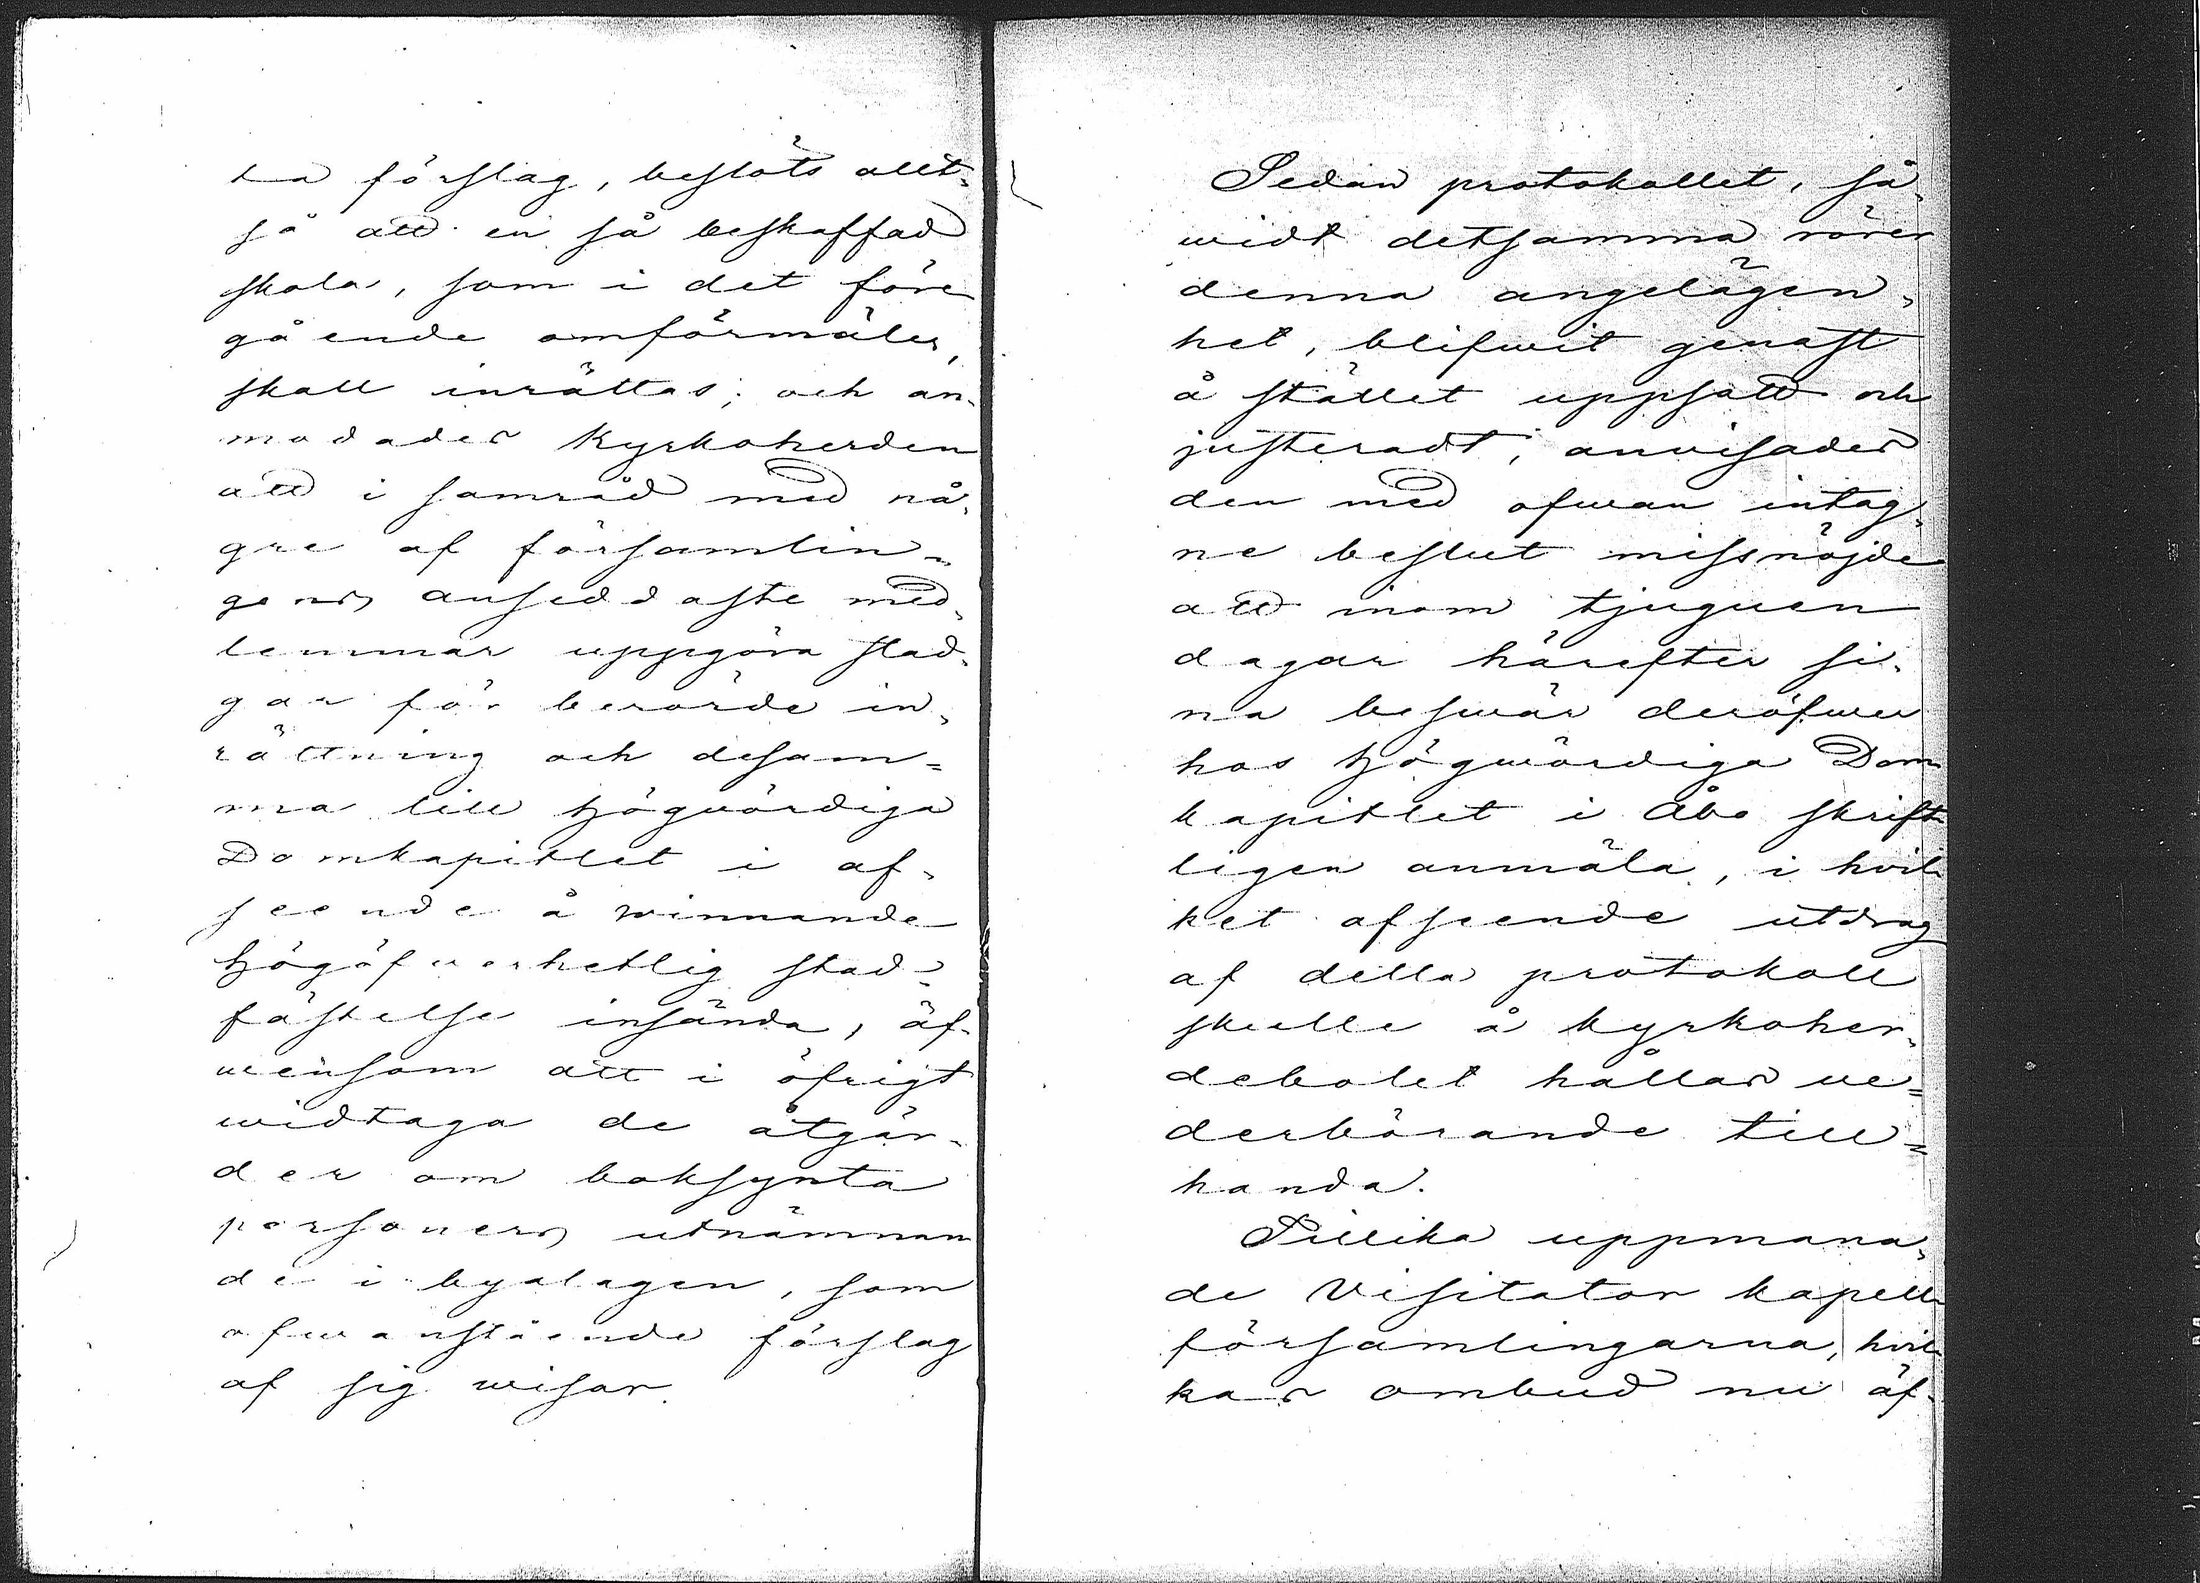 ta förslag, beslöts allt-
så att en så beskaffad
skola, som i det före
gående omförmäles,
skall inrättas; och an-
modades Kyrkoherden
att i samråd med nå-
gre af församlin-
gens anseddaste med-
lemmar uppgöra stad-
gar för berörde in-
rättning och desam-
ma till Högwördiga
Domkapitlet i af-
seende å winnande
Högöfwerhetlig stad-
fästelse insända, äf-
wensom att i öfrigt
widtaga de åtgär-
der om boksynta
personers utnämnan
de i byalagen, som
ofwanstående förslag
af sig wisar.
Sedan protokollet, så-
widt detsamma rörer
denna angelägen-
het, blifwit genast
å stället uppsatt och
justeradt, anvisades
den med ofwan intag-
ne beslut missnöjde
att inom tjuguen
dagar härefter si-
na beswär deröfwer
hos Högwördiga Dom
kapitlet i Åbo skrift-
ligen anmäla, i hvil-
ket afseende utdrag
af detta protokoll
skulle å Kyrkoher-
debolet hållas we-
derbörande till-
handa.
Tillika uppmana-
de Visitator kapell-
församlingarna, hvil-
kas ombud nu äf-